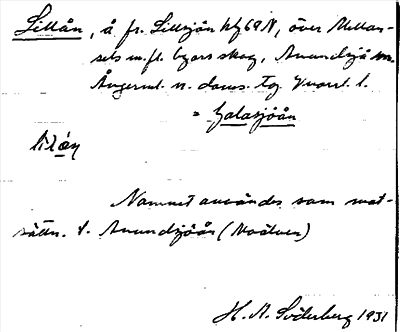 Lillån, å fr. Lillsjön kbl 69 N, över Mellan-
sels m. fl. byars skog, Anundsjö sn.
Ångerml. n. doms. Tg.
= Galasjöån
Namnet användes som mot-
sättn. t. Anundsjöån (Moälven)
H. A. Söderberg 1931